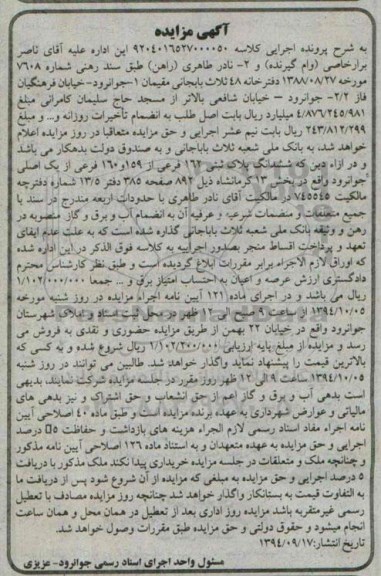 آگهی مزایده
به شرح پرونده اجرایی کلاسه ۹۲۰۴۰۱۶۵۲۷۰۰۰۰۵۰ این اداره علیه آقای ناصر
برارخاصی (وام گیرنده) و ۲- نادر طاهری (راهن) طبق سند رهنی شماره ۷۶۰۸
مورخه ۱۳۸۸/۰۸/۲۷ دفترخانه ۴۸ ثلاث باباجانی مقیمان ۱-جوانرود-خیابان فرهنگیان
فاز ۲/۲- جوانرود – خیابان شافعی بالاتر از مسجد حاج سلیمان کامرانی مبلغ
۴/۸۷۶/۲۴۵/۹۸۱ میلیارد ریال بابت اصل طلب به انضمام تأخیرات روزانه و... و مبلغ
۲۴۳/۸۱۲/۲۹۹ ریال بابت نیم عشر اجرایی و حق مزایده متعاقبا در روز مزایده اعلام
خواهد شد، به بانک ملی شعبه ثلاث باباجانی و به صندوق دولت بدهکار می باشد
و در ازاء دین که ششدانگ پلاک ثبتی ۱۶۲ فرعی از ۱۵۹و۱۶۰ فرعی از یک اصلی
جوانرود واقع در بخش ۱۳ کرمانشاه ذیل ۸۹۲ صفحه ۳۸۵ دفتر ۱۳/۵ شماره دفترچه
مالکیت ۷۴۵۵۴۵ در مالکیت آقای نادر طاهری با حدودات اربعه مندرج در سند با
جمیع متعلقات و منضمات شرعیه و عرفیه آن به انضمام آب و برق و گاز منصوبه در
رهن و وثیقه بانک ملی شعبه ثلاث باباجانی گذارده شده است که به علت عدم ایفای
تعهد و پرداخت اقساط منجر بصدور اجرائیه به کلاسه فوق الذکر در این اداره شده
که اوراق لازم الاجراء برابر مقررات ابلاغ گردیده است و طبق نظر کارشناس محترم
دادگستری ارزش عرصه و اعیان به احتساب امتیاز برق و ... جمعا ۱/۱۰۲/۰۰۰/۰۰۰
ریال می باشد و در اجرای ماده ۱۲۱ آیین نامه اجراء مزایده در روز شنبه مورخه
۱۳۹۴/۱۰/۰۵ از ساعت ۹ صبح الی ۱۲ ظهر در محل ثبت اسناد و املاک شهرستان
جوانرود واقع در خیابان ۲۲ بهمن از طریق مزایده حضوری و نقدی به فروش می
رسد و مزایده از مبلغ پایه ارزیابی ۱/۱۰۲/۲۰۰/۰۰۰ ریال شروع شده و به کسی که
بالاترین قیمت را پیشنهاد نماید واگذار خواهد شد. طالبین می توانند در روز شنبه
۱۳۹۴/۱۰/۰۵ ساعت ۹ الی ۱۲ ظهر روز مقرر در جلسه مزایده شرکت نمایند. بدیهی
است بدهی آب و برق و گاز اعم از حق انشعاب و حق اشتراک و نیز بدهی های
مالیاتی و عوارض شهرداری به عهده برنده مزایده است و طبق ماده ۴۰ اصلاحی آیین
نامه اجراء مفاد اسناد رسمی لازم الاجراء هزینه های بازداشت و حفاظت ۵ درصد
اجرایی و حق مزایده به عهده متعهدان و به استناد ماده ۱۲۶ اصلاحی آیین نامه مذکور
و چنانچه ملک و متعلقات در جلسه مزایده خریداری پیدا نکند ملک مذکور با دریافت
۵ درصد اجرایی و حق مزایده به مبلغی که مزایده از آن شروع شود پس از دریافت ما
به التفاوت قیمت به بستانکار واگذار خواهد شد چنانچه روز مزایده مصادف با تعطیل
رسمی غیرمتقربه باشد مزایده روز اداری بعد از تعطیل در همان محل و همان ساعت
انجام میشود و حقوق دولتی و حق مزایده طبق مقررات وصول خواهد شد.
تاریخ انتشار: ۱۳۹۴/۰۹/۱۷
مسئول واحد اجرای اسناد رسمی جوانرود- عزیزی